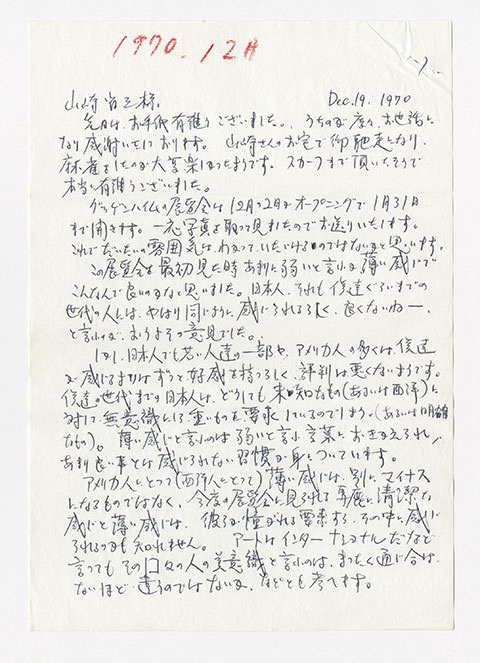 1970.12月
1
山崎省三様、 Dec.19. 1970
先日は、お手紙有難うございました。うちのが度々お世話に
なり感謝いたしております。山崎さんのお宅で御馳走になり、
麻雀をしたのが大変楽しかったようです。スカーフまで頂いたそうで
本当に有難うございました。
グッゲンハイムの展覧会は12月の2日がオープニングで1月31日
まで開きます。一応写真を取って見ましたのでお送りいたします。
これでだいたいの雰囲気は、わかっていただけるのではないかと思います。
この展覧会を最初見た時あまりに弱いと言うか薄い感じで
こんなんで良いのかなと思いました。日本人、それも俺達ぐらいまでの
世代の人には、やはり同じように感じられるらしく、良くないねー、
と言うのが、おうよその意見でした。
しかし、日本人でも若い人達の一部や、アメリカ人の多くは、俺達
が感じるよりはずっと好感を持つらしく、評判は悪くないようです。
俺達の世代までの日本人は、どうしても未知なもの(あるいは西洋)に
対して無意識にしろ重いものを要求しているのでしょうか(あるいは明確
なもの)。薄い感じと言うのは弱いと言う言葉におきかえられ、
あまり良い事とは感じられない習慣が身についています。
アメリカ人にとって(西洋人にとって)薄い感じは、別に、マイナス
になるものではなく、今度の展覧会に見られる馬鹿に清潔な
感じと薄い感じは、彼らが憧がれる要素すら、その中に感じ
られるのかも知れません。アートはインターナショナルだなどと
言ってもその国々の人の美意識と言うのは、まったく通じ合は
ないほど違うのではないか、などとも考へます。